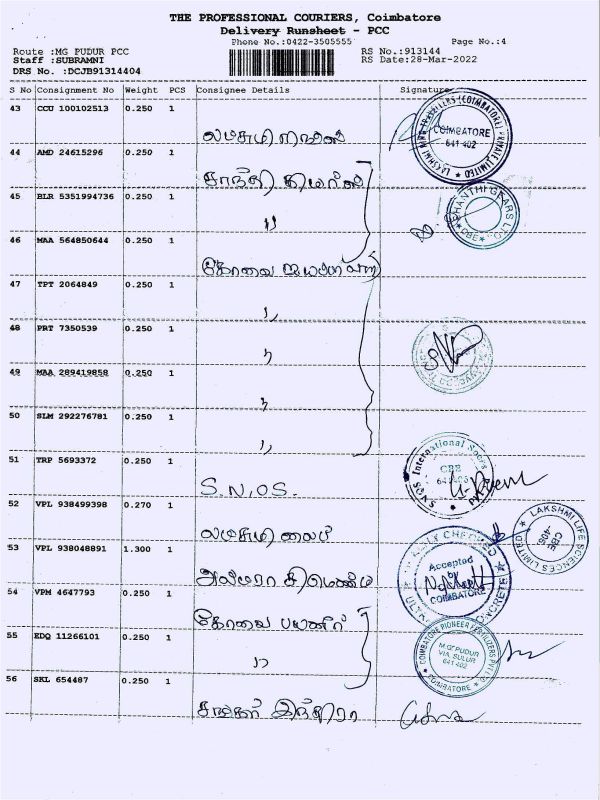 THE PROFESSIONAL COURIERS, Coimbatore
Delivery Runsheet - PCC
Phone No.:0422-3505555 Page No.:4
Route :MG PUDUR PCC RS No.:913144
Staff :SUBRAMNI RS Date:28-Mar-2022
DRS No. :DCJB91314404
S No Consignment No Weight PCS Consignee Details Signature
43 CCU 100102513 0.250 1
COIMBATORE
641 402
44 AMD 24615296 0.250 1
சாந்தி கியர்ஸ்
45 BLR 5351994736 0.250 1
"
SHANTHI GEARS LTD
CBE
46 MAA 564850644 0.250 1
கோவை
47 TPT 2064849 0.250 1
"
48 PRT 7350539 0.250 1
"
49 MAA 289419858 0.250 1
"
50 SLM 292276781 0.250 1
"
51 TRP 5693372 0.250 1
S.N.OS.
SNQS International Socks
CBE
52 VPL 938499398 0.270 1
லட்சுமி லைப்
LAKSHMI LIFE SCIENCES LIMITED
CBE
53 VPL 938048891 1.300 1
Accepted
COIMBATORE
54 VPM 4647793 0.250 1
கோவை பயனீர்
55 EDQ 11266101 0.250 1
"
COIMBATORE PIONEER FERTILIZERS PVT LTD
M.G. PUDUR
VIA. SULUR
641 402
COIMBATORE
56 SKL 654487 0.250 1